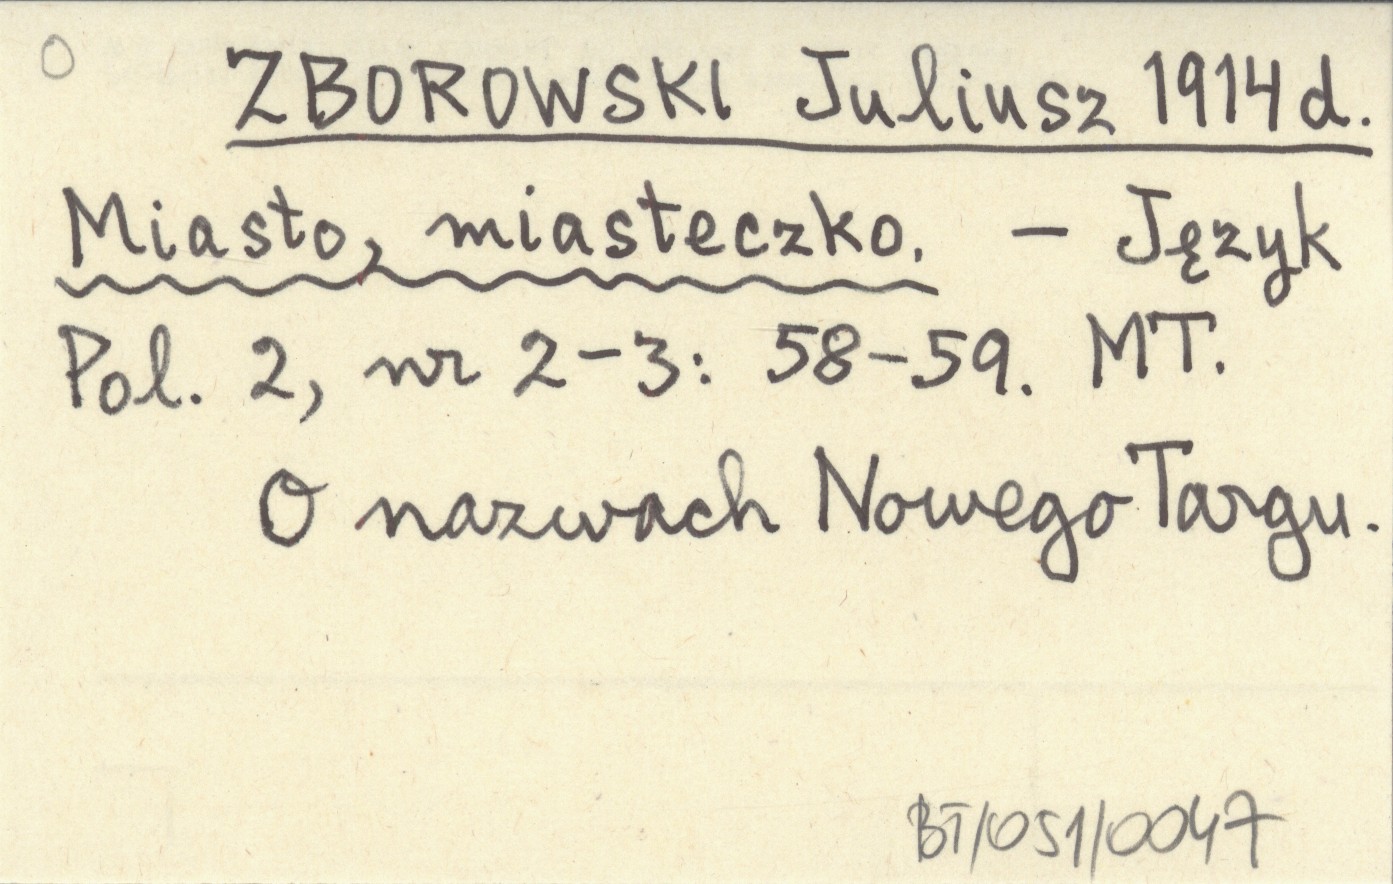 O
ZBOROWSKI Juliusz 1914d.
Miasto, miasteczko. – Język
Pol. 2, nr 2–3: 58–59. MT.
O nazwach Nowego Targu.
BT/051/0047